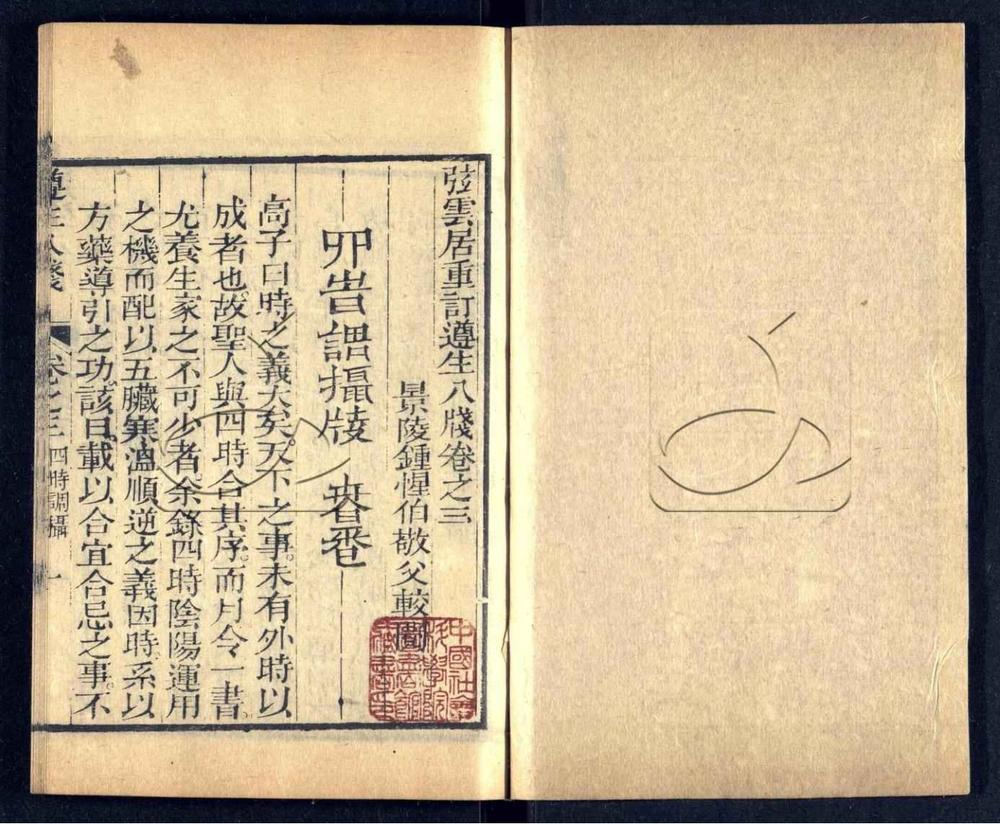 弦雲居重訂遵生八牋卷之三
景陵鍾惺伯敬父較閱
四時調攝牋 春卷
高子曰時之義大矣天下之事未有外時以
成者也故聖人與四時合其序而月令一書
尤養生家之不可少者余錄四時陰陽運用
之機而配以五臟寒溫順逆之義因時系以
方藥導引之功該日載以合宜合忌之事不
遵生八牋 卷之三 四時調攝 一
中國社會科學院圖書館藏書